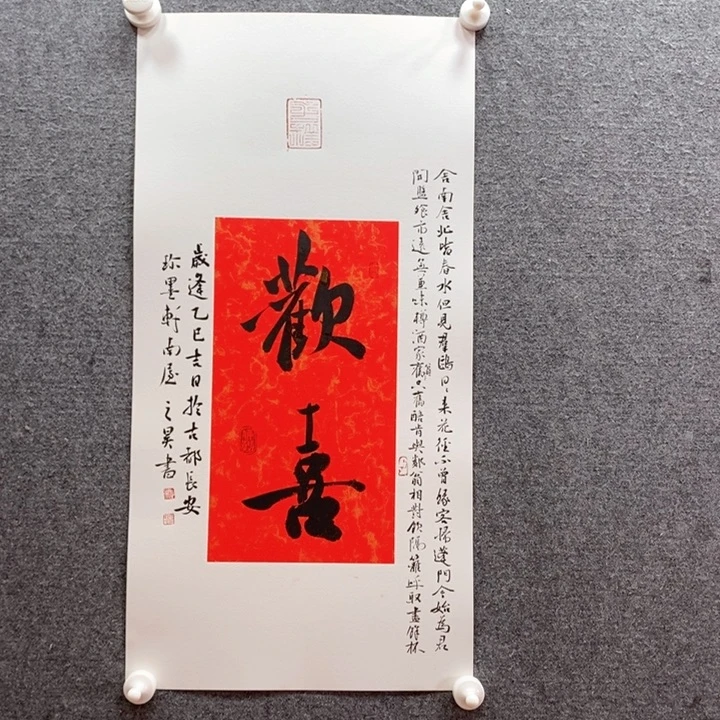 舍南舍北皆春水但見羣鷗日日来花徑不曾緣客掃蓬門今始為君
開盤飧市遠無兼味樽酒家舊貧只舊醅肯與鄰翁相對飲隔籬呼取盡餘杯
歡喜
歲逢乙巳吉日於古都長安
珍墨軒南屋之昊書